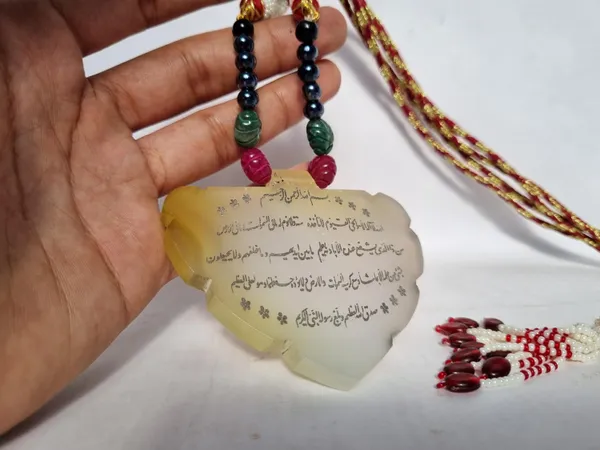 بسم الله الرحمن الرحيم
الله لا اله الا هو الحي القيوم لا تأخذه سنة ولا نوم له ما في السموات وما في الارض
من ذا الذي يشفع عنده الا باذنه يعلم ما بين ايديهم وما خلفهم ولا يحيطون
بشيء من علمه الا بما شاء وسع كرسيه السموات والارض ولا يؤده حفظهما وهو العلي العظيم
صدق الله العظيم وبلغ رسوله النبي الكريم